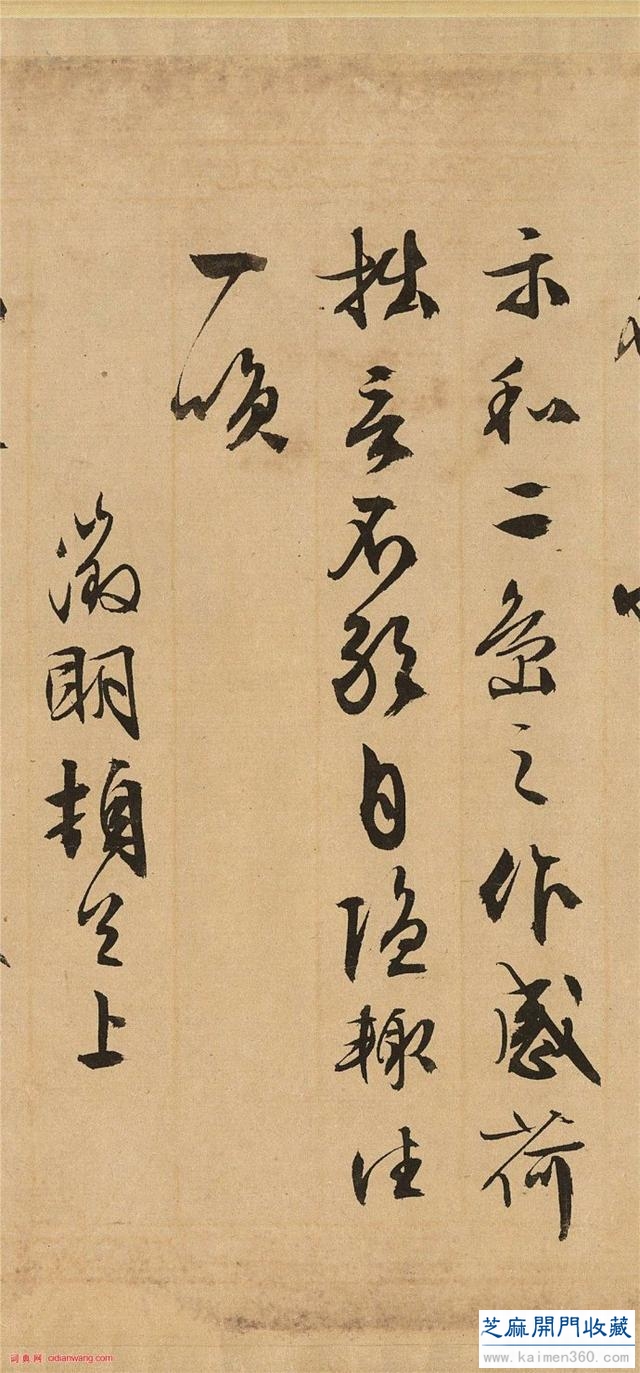 示和二之作感荷
拙言不能自隱輙往
一
徵明頓首上
芝麻開門收藏
www.kaimen360.com
词典网 cidianwang.com